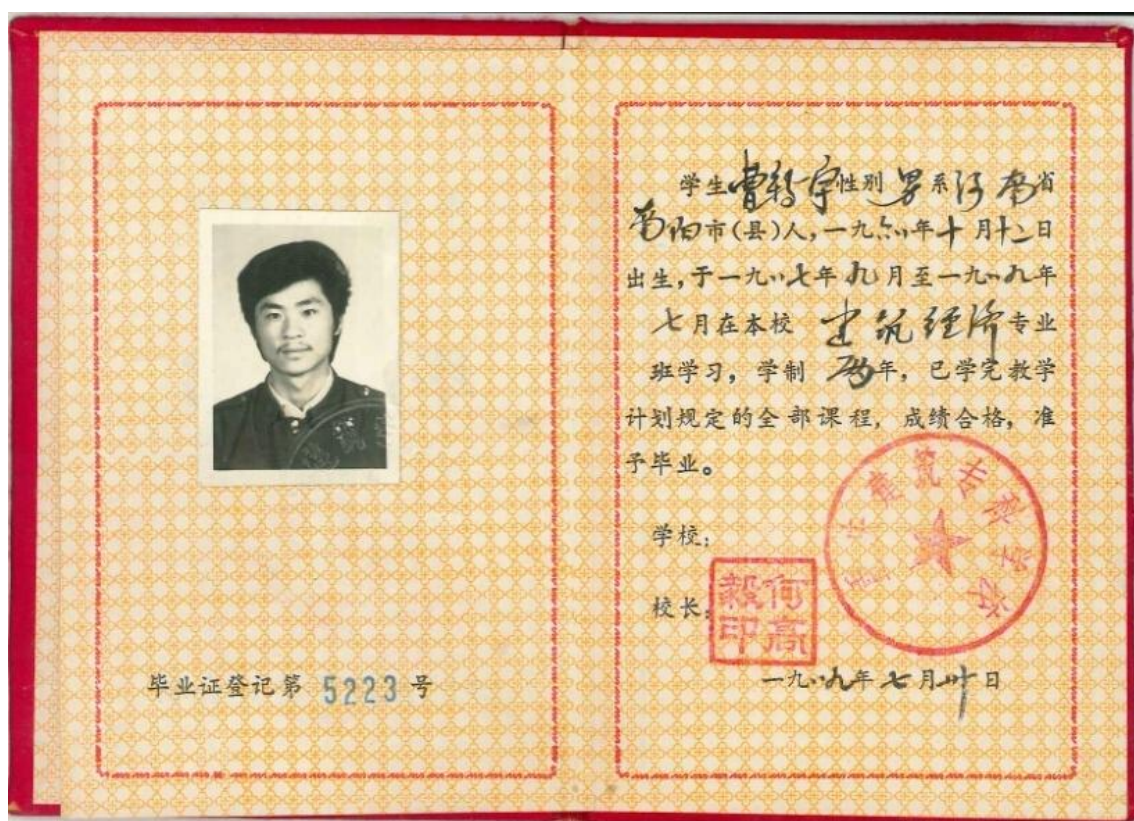 毕业证登记第 5223 号
学生曹 宇性别 男 系 河南省
南阳市(县)人,一九六八年十月十二日
出生,于一九八七年九月至一九八九年
七月在本校 建筑经济专业
班学习,学制 两年,已学完教学
计划规定的全部课程,成绩合格,准
予毕业。
学校:
建筑专科学校
校长:
何高毅印
一九八九年七月卅日